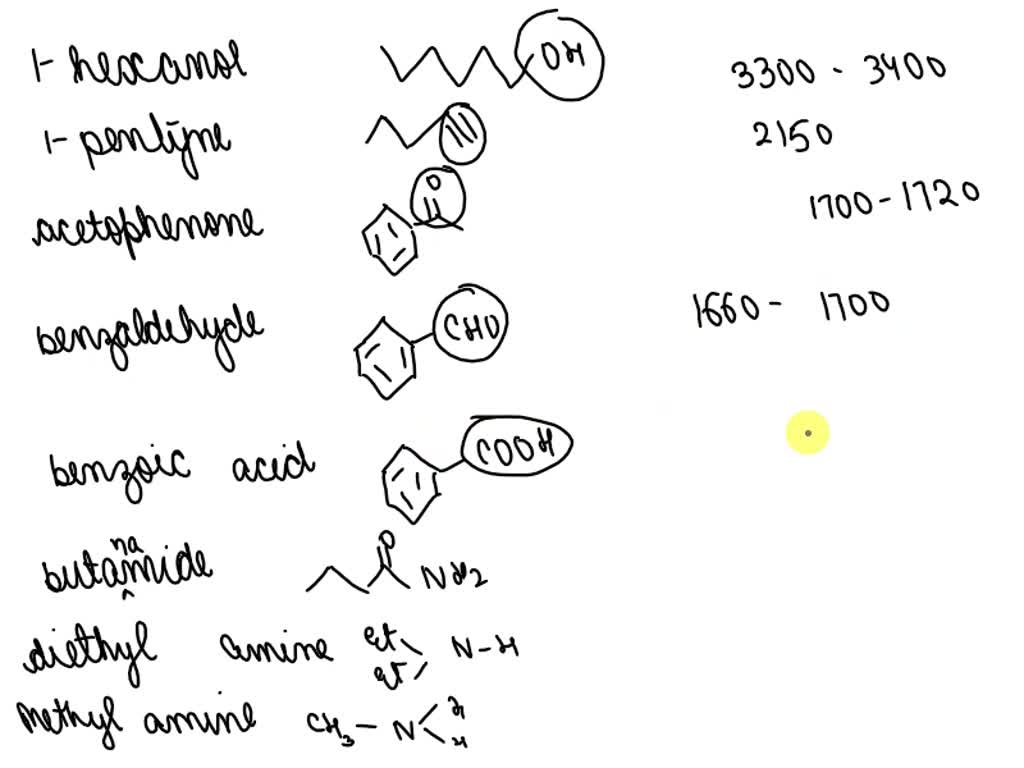 1-hexanol OH 3300 - 3400
1-pentyne 2150
acetophenone O 1700-1720
benzaldehyde CHO 1660- 1700
benzoic acid COOH
na
butamide O NH2
^
diethyl amine et et N-H
methyl amine CH3-N H H